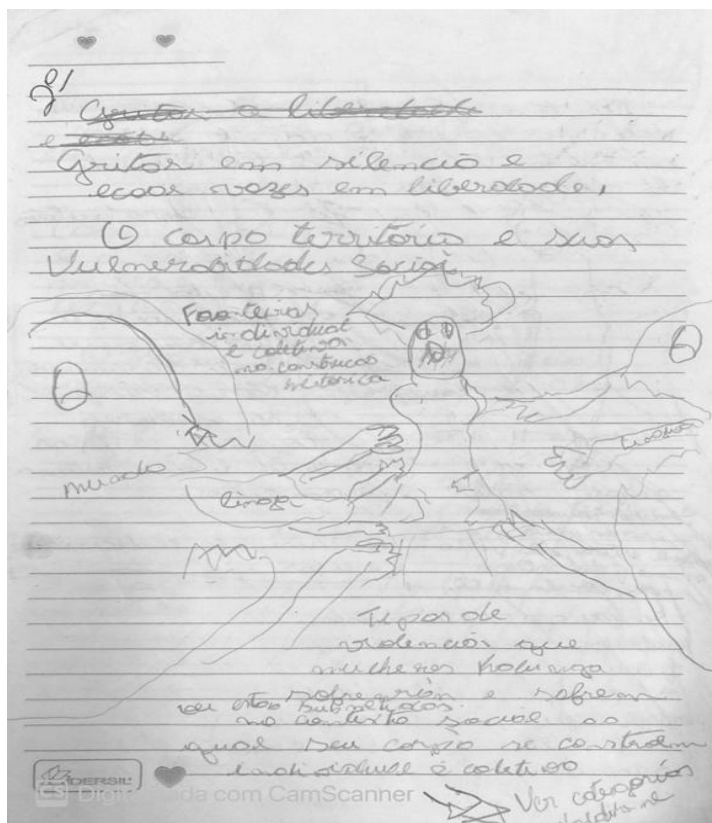 Gritar a liberdade
e
Gritar em silencio e
ecoar vozes em liberdade,
O corpo territorio e suas
Vulnerabilidades Sociai
Fronteiras
individual
e coletiva
na construcao
historica
mundo
limoja
Tipos de
violencias que
mulheres
sofreram e sofrem
ou estao submetidas
no contexto social ao
qual seu corpo se constroem
individual e coletivo
DERSIL
Digitalizada com CamScanner
Ver categorias